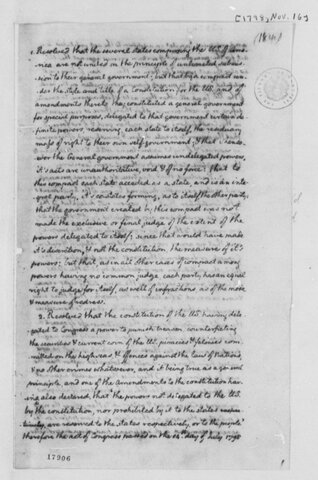 [1798, Nov. 16]
1. Resolved that the several states composing the US. of Ame-
rica are not united on the principle of unlimited submis-
sion to their general government; but that by a compact un-
der the style and title of a Constitution for the US. and of
amendments thereto they constituted a general government
for special purposes, delegated to that government certain de-
finite powers, reserving, each state to itself, the residuary
mass of right to their own self-government; & that whenso-
ever the General government assumes undelegated powers,
it's acts are unauthoritative, void & of no force: that to
this compact each state acceded as a state, and is an inte-
gral party, it's co-states forming, as to itself, the other party;
that the government created by this compact was not
made the exclusive or final judge of the extent of the
powers delegated to itself; since that would have made
it's discretion, & not the constitution the measure of it's
powers; but that, as in all other cases of compact among
powers having no common judge, each party has an equal
right to judge for itself, as well of infractions as of the mode
& measure of redress.
2. Resolved that the constitution of the US. having dele-
gated to Congress a power to punish treason, counterfeiting
the securities & current coin of the US. piracies & felonies com-
mitted on the high seas & offences against the law of Nations,
& no other crimes whatsoever, and it being true as a general
principle and one of the Amendments to the constitution hav-
ing also declared, that 'the powers not delegated to the US.
by the constitution, nor prohibited by it to the states respec-
tively, are reserved to the states respectively, or to the people'
therefore the act of Congress passed on the 14th. day of July 1798
17906